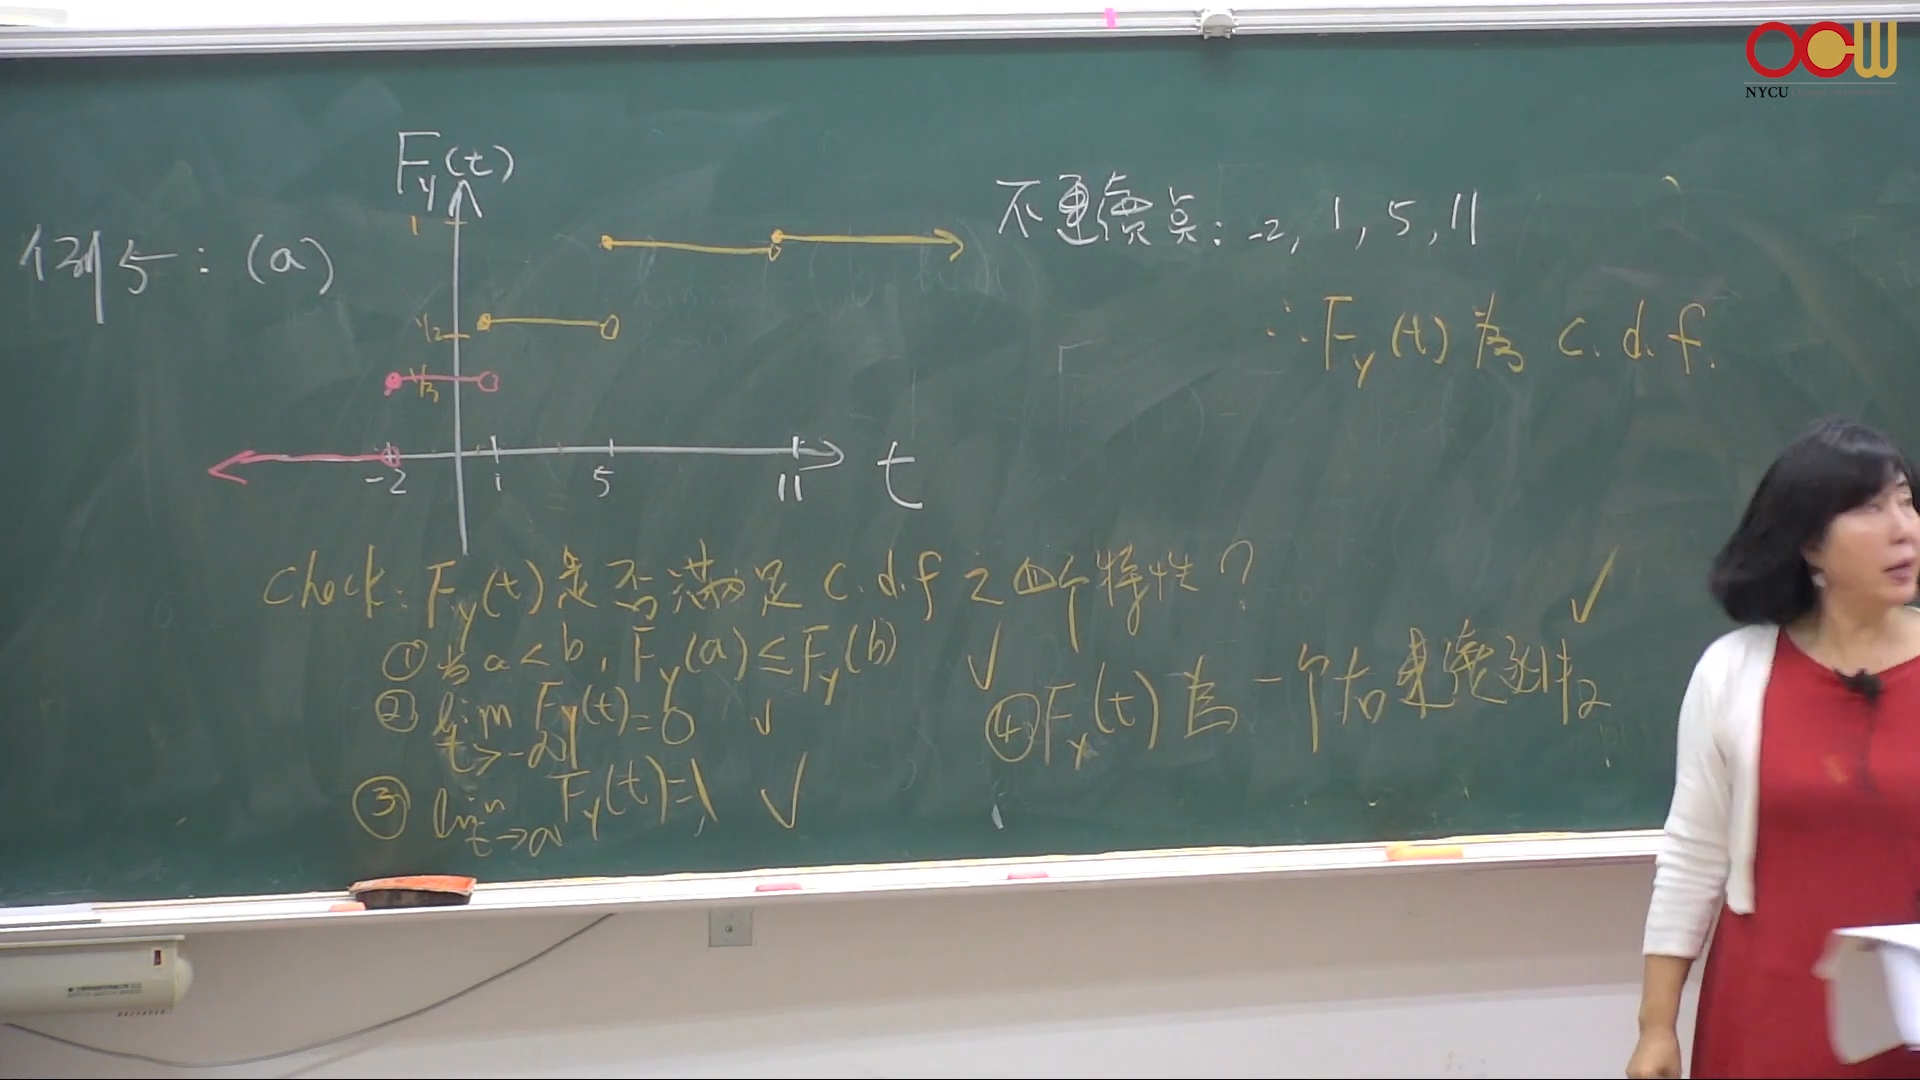 OCW
NYCU
例5：(a)
F_Y(t)
1
1/2
1/3
-2
1
5
11
t
不連續點：-2, 1, 5, 11
∴F_Y(t)為 c.d.f.
Check：F_Y(t)是否滿足 c.d.f 之四个特性？
①當a<b, F_Y(a)≤F_Y(b) ✓
② lim t→-∞ F_Y(t)=0 ✓
③ lim t→∞ F_Y(t)=1 ✓
④F_Y(t)為一个右連續函數 ✓